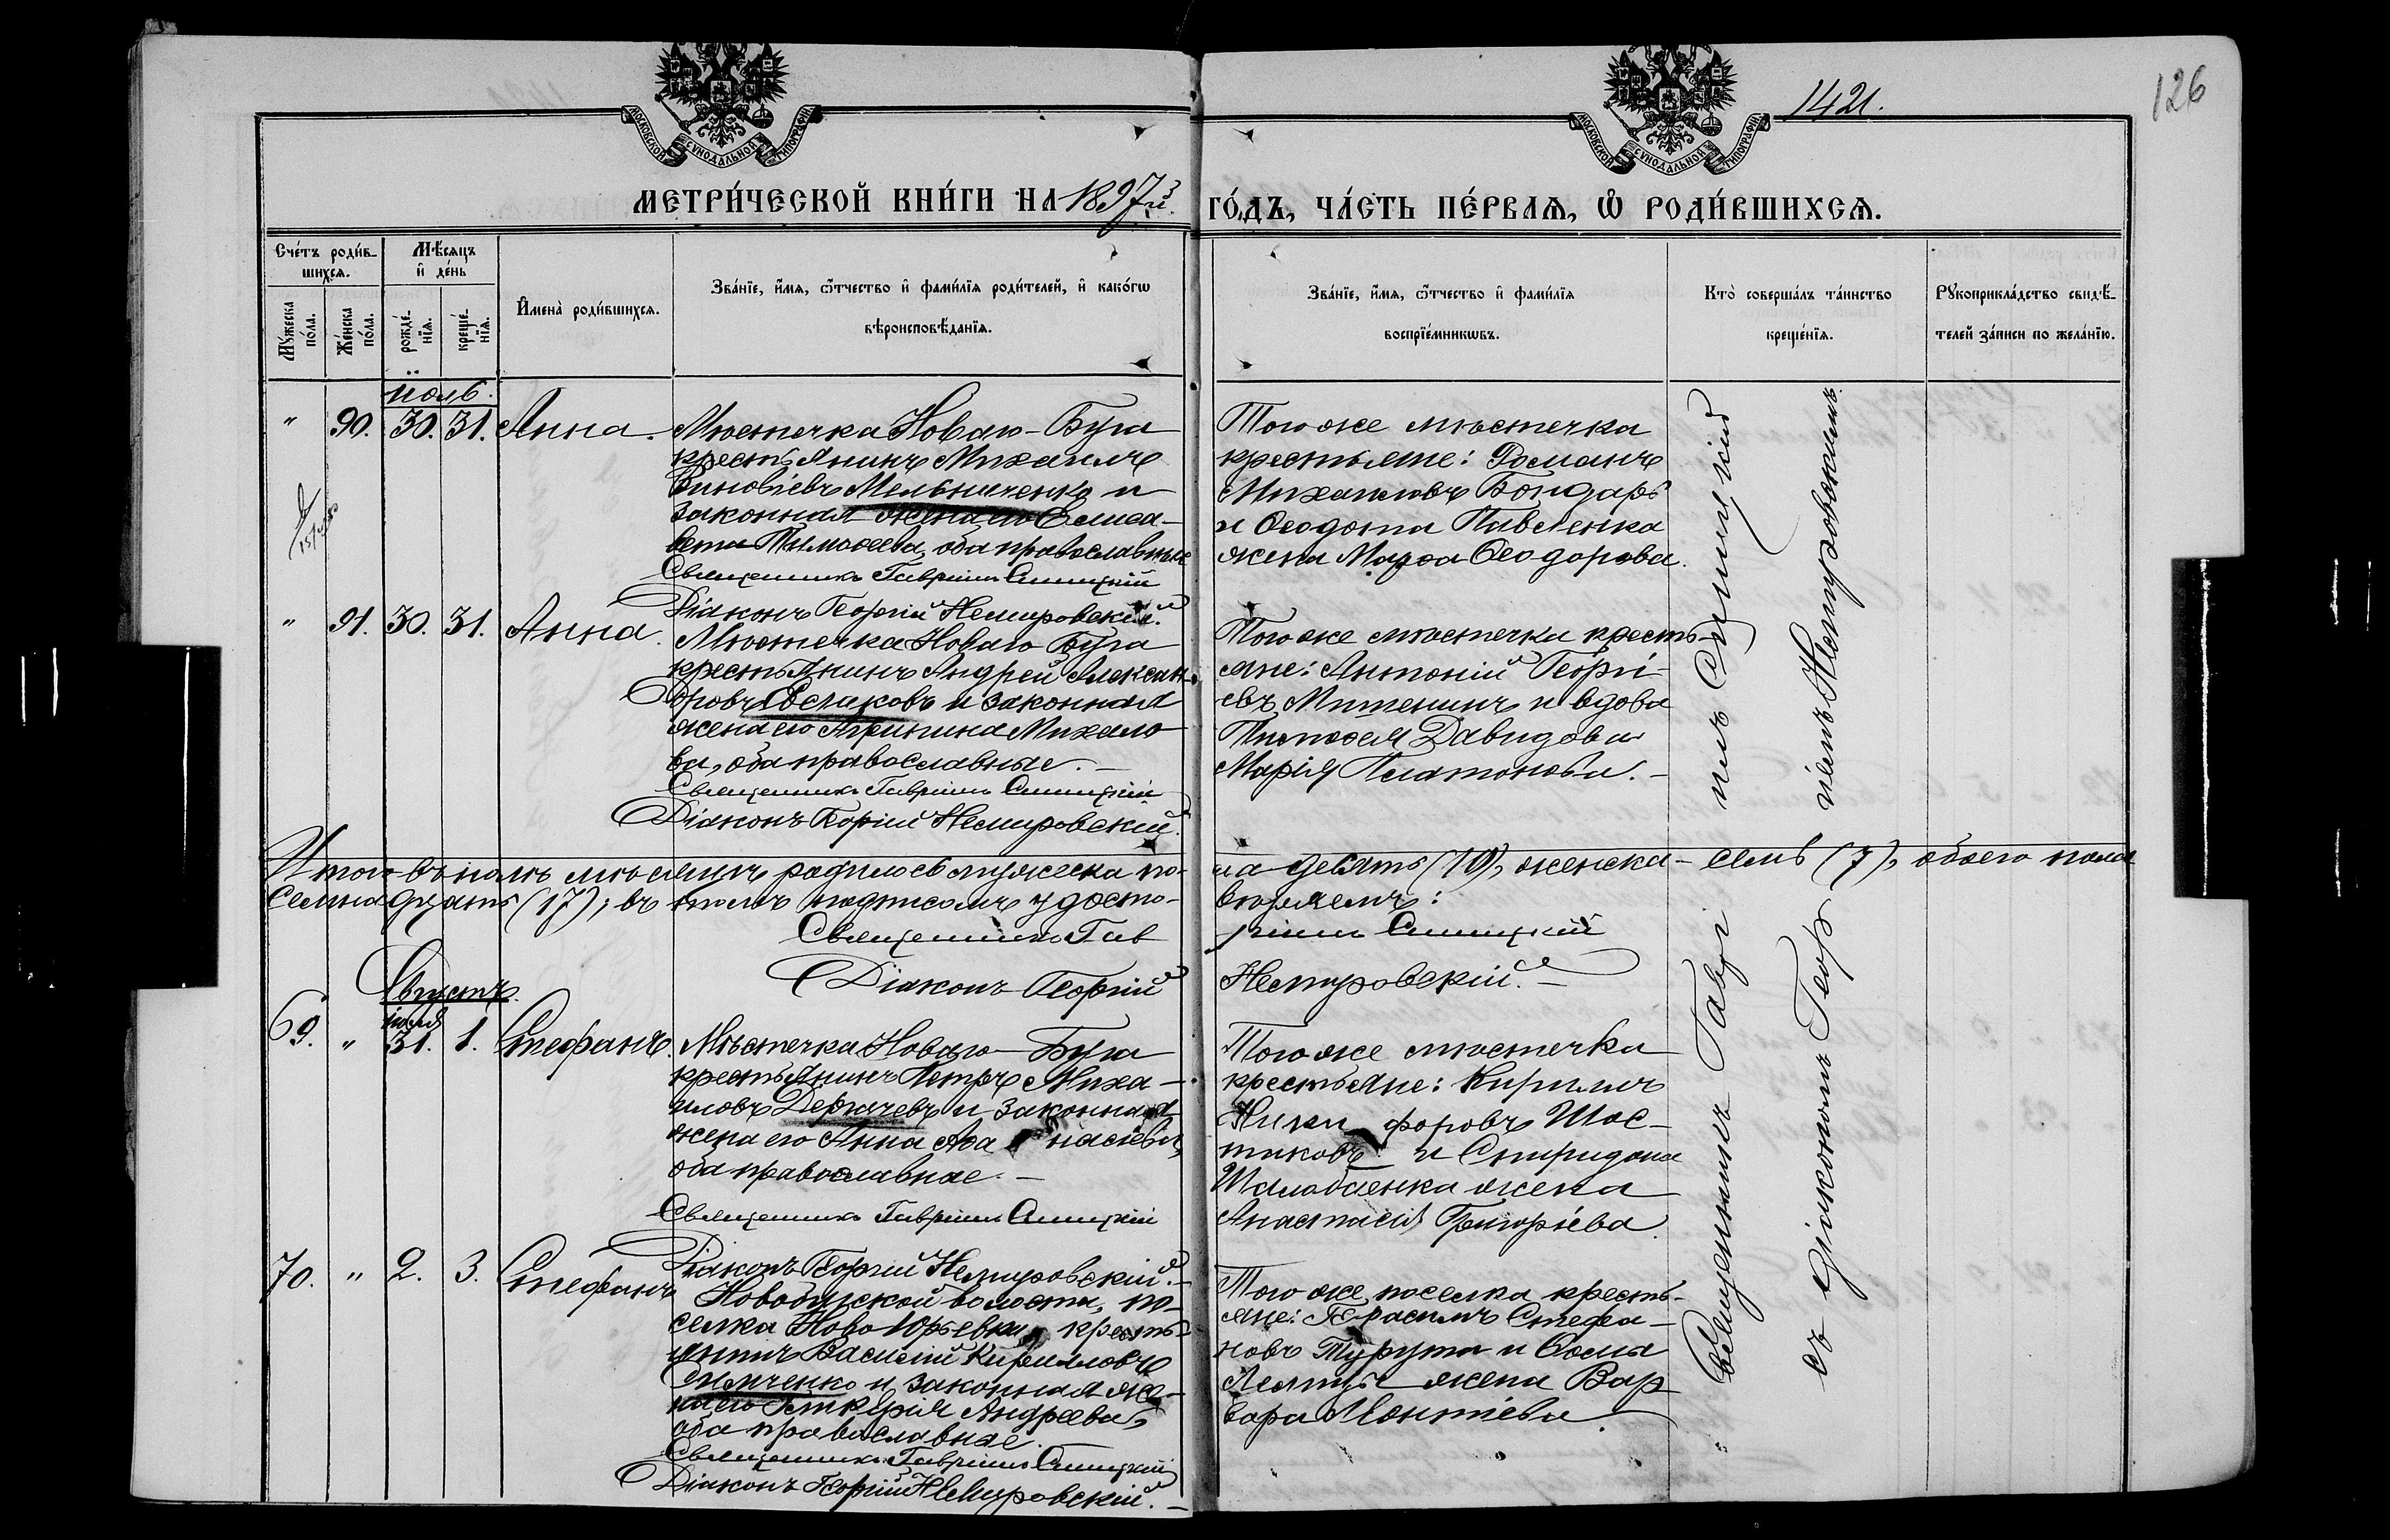 126
1421.
МОСКОВСКОЙ СУНОДАЛЬНОЙ ТИПОГРАФІИ
МОСКОВСКОЙ СУНОДАЛЬНОЙ ТИПОГРАФІИ
МЕТРИ́ЧЕСКОЙ КНИ́ГИ НА 1897й ГО́ДЪ, ЧА́СТЬ ПЕ́РВАѦ, Ѡ РОДИ́ВШИХСѦ.
Сче́тъ роди́в-
шихсѧ.
Мѣ́сѧцъ
и҆ де́нь
Му́жеска
по́ла.
Же́нска
по́ла.
рожде́-
нїѧ.
креще́-
нїѧ.
И҆мена̀ роди́вшихсѧ.
Зва́нїе, и҆́мѧ, ѻ҆́тчество и҆ фами́лїѧ роди́телей, и҆ како́гѡ
вѣроисповѣ́данїѧ.
Зва́нїе, и҆́мѧ, ѻ҆́тчество и҆ фами́лїѧ
воспрїе́мникѡвъ.
Кто̀ соверша́лъ та́инство
креще́нїѧ.
Рꙋкоприкла́дство свидѣ́-
телей за́писи по жела́нїю.
іюль.
" 90. 30. 31. Анна.
Мѣстечка Новаго-Буга
крестьянинъ Михаилъ
Зиновіевъ Мельниченко и
законная жена его Елиса-
вета Тимоѳеева, оба православные
Священникъ Гавріилъ Синицкій
Діаконъ Георгій Немировскій.
Того же мѣстечка
крестьяне: Романъ
Михаиловъ Бондарь
и Ѳеодота Павленка
жена Марѳа Ѳеодорова.
" 91. 30. 31. Анна.
Мѣстечка Новаго Буга
крестьянинъ Андрей Алексан-
дровъ и законная
жена его Агрипина Михаило-
ва, оба православные.
Священникъ Гавріилъ Синицкій
Діаконъ Георгій Немировскій.
Того же мѣстечка кресть-
яне: Антоній Георгі-
евъ Митенинъ и вдова
Тимоѳея Давидова
Марія Платонова.
Итого въ іюлѣ мѣсяцѣ родилось мужеска по-ла девять (10), женска - семь (7), обоего пола
семнадцать (17); въ томъ подписомъ удосто-вѣряемъ:
Священникъ Гавріилъ Синицкій
Діаконъ Георгій Немировскій.
Августъ.
іюля
69. " 31. 1. Стефанъ.
Мѣстечка Новаго-Буга
крестьянинъ Петръ Миха-
иловъ Деркачевъ и законная
жена его Анна Аѳанасіева,
оба православные.
Священникъ Гавріилъ Синицкій
Діаконъ Георгій Немировскій.
Того же мѣстечка
крестьяне: Кириллъ
Никифоровъ Шос-
таковъ и Спиридона
жена
Анастасія Григоріева.
70. " 2. 3. Стефанъ
Новобугской волости, по-
селка Ново Юрьевки, кресть-
янинъ Василій Кирилловъ
Симченко и законная же-
на его Гликерія Андреева,
оба православные.
Священникъ Гавріилъ Синицкій
Діаконъ Георгій Немировскій.
Того же поселка кресть-
яне: Герасимъ Стефа-
новъ Турута и Ѳомы
жена Вар-
вара Леонтіева.
Священникъ Гавріилъ Синицкій
съ діакономъ Георгіемъ Немировскимъ.